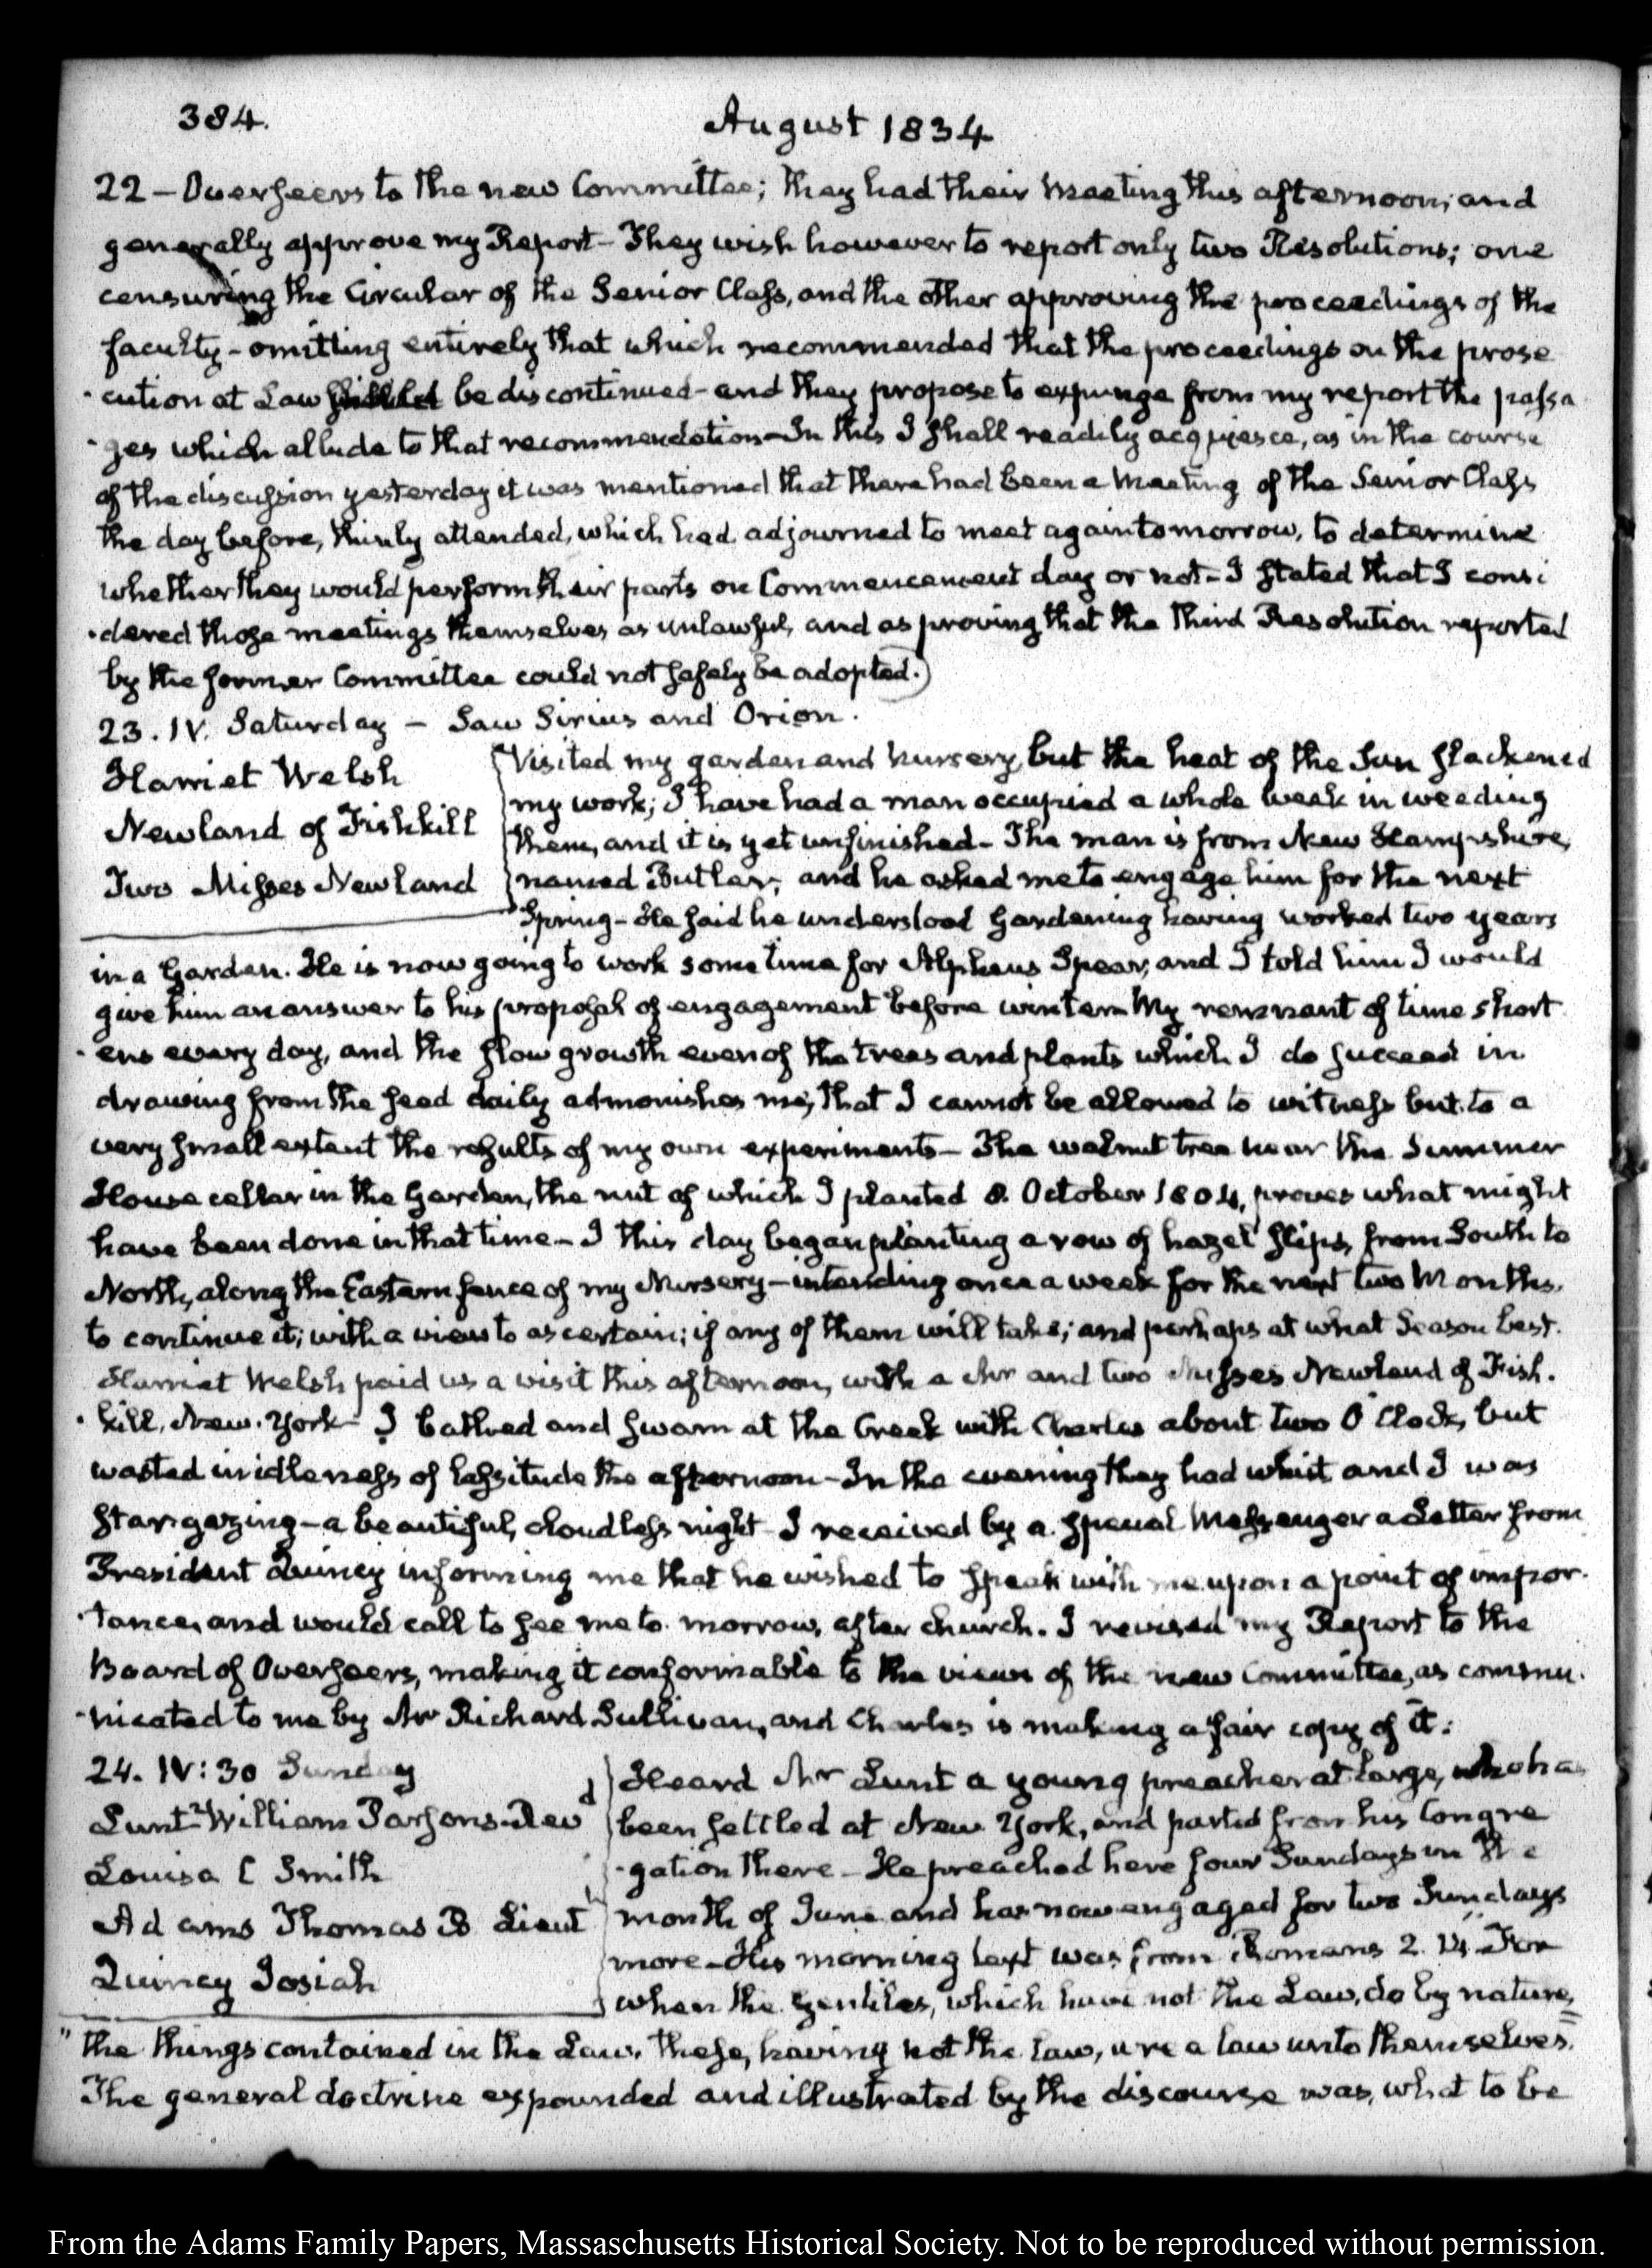 384.
August 1834
22 – Overseers to the new Committee; they had their meeting this afternoon; and
generally approve my Report – They wish however to report only two Resolutions; one
censuring the Circular of the Senior Class, and the other approving the proceedings of the
faculty – omitting entirely that which recommended that the proceedings on the prose
-cution at Law be discontinued – and they propose to expunge from my report the passa
-ges which allude to that recommendation – In this I shall readily acquiesce, as in the course
of the discussion yesterday it was mentioned that there had been a meeting of the Senior Class
the day before, thinly attended, which had adjourned to meet again tomorrow, to determine
whether they would perform their parts on Commencement day or not – I stated that I consi
-dered those meetings themselves as unlawful, and as proving that the third Resolution reported
by the former Committee could not safely be adopted.)
23. IV. Saturday – Saw Sirius and Orion.
Harriet Welsh
Newland of Fishkill
Two Misses Newland
Visited my garden and nursery, but the heat of the Sun slackened
my work; I have had a man occupied a whole week in weeding
them, and it is yet unfinished – The man is from New Hampshire,
named Butler, and he asked me to engage him for the next
Spring – He said he understood Gardening having worked two years
in a Garden. He is now going to work some time for Alpheus Spear, and I told him I would
give him an answer to his proposal of engagement before winter – My remnant of time short
-ens every day, and the slow growth even of the trees and plants which I do succeed in
drawing from the seed daily admonishes me, that I cannot be allowed to witness but to a
very small extent the results of my own experiments – The walnut tree near the Summer
House cellar in the Garden, the nut of which I planted 8. October 1804, proves what might
have been done in that time – I this day began planting a row of hazel slips, from South to
North, along the Eastern fence of my Nursery – intending once a week for the next two Months.
to continue it; with a view to ascertain; if any of them will take; and perhaps at what Season best.
Harriet Welsh paid us a visit this afternoon, with a Mr and two Misses Newland of Fish.
-kill, New-York – I bathed and swam at the Creek with Charles about two O'Clock, but
wasted in idleness of lassitude the afternoon – In the evening they had whist and I was
Stargazing – a beautiful, cloudless night – I received by a special Messenger a Letter from
President Quincy informing me that he wished to speak with me upon a point of impor-
-tance, and would call to see me to-morrow, after church. I revised my Report to the
Board of Overseers, making it conformable to the views of the new Committee, as commu-
-nicated to me by Mr Richard Sullivan, and Charles is making a fair copy of it.
24. IV:30 Sunday
Lunt William Parsons – Revd
Louisa C Smith
Adams Thomas B Lieut
Quincy Josiah
Heard Mr Lunt a young preacher at large, who has
been settled at New York, and parted from his Congre
-gation there – He preached here four Sundays in the
month of June and has now engaged for two Sundays
more – His morning text was from Romans 2. 14. "For
when the gentiles, which have not the Law, do by nature,
"the things contained in the Law, these, having not the law, are a law unto themselves.
The general doctrine expounded and illustrated by the discourse was, what to be
From the Adams Family Papers, Massaschusetts Historical Society. Not to be reproduced without permission.